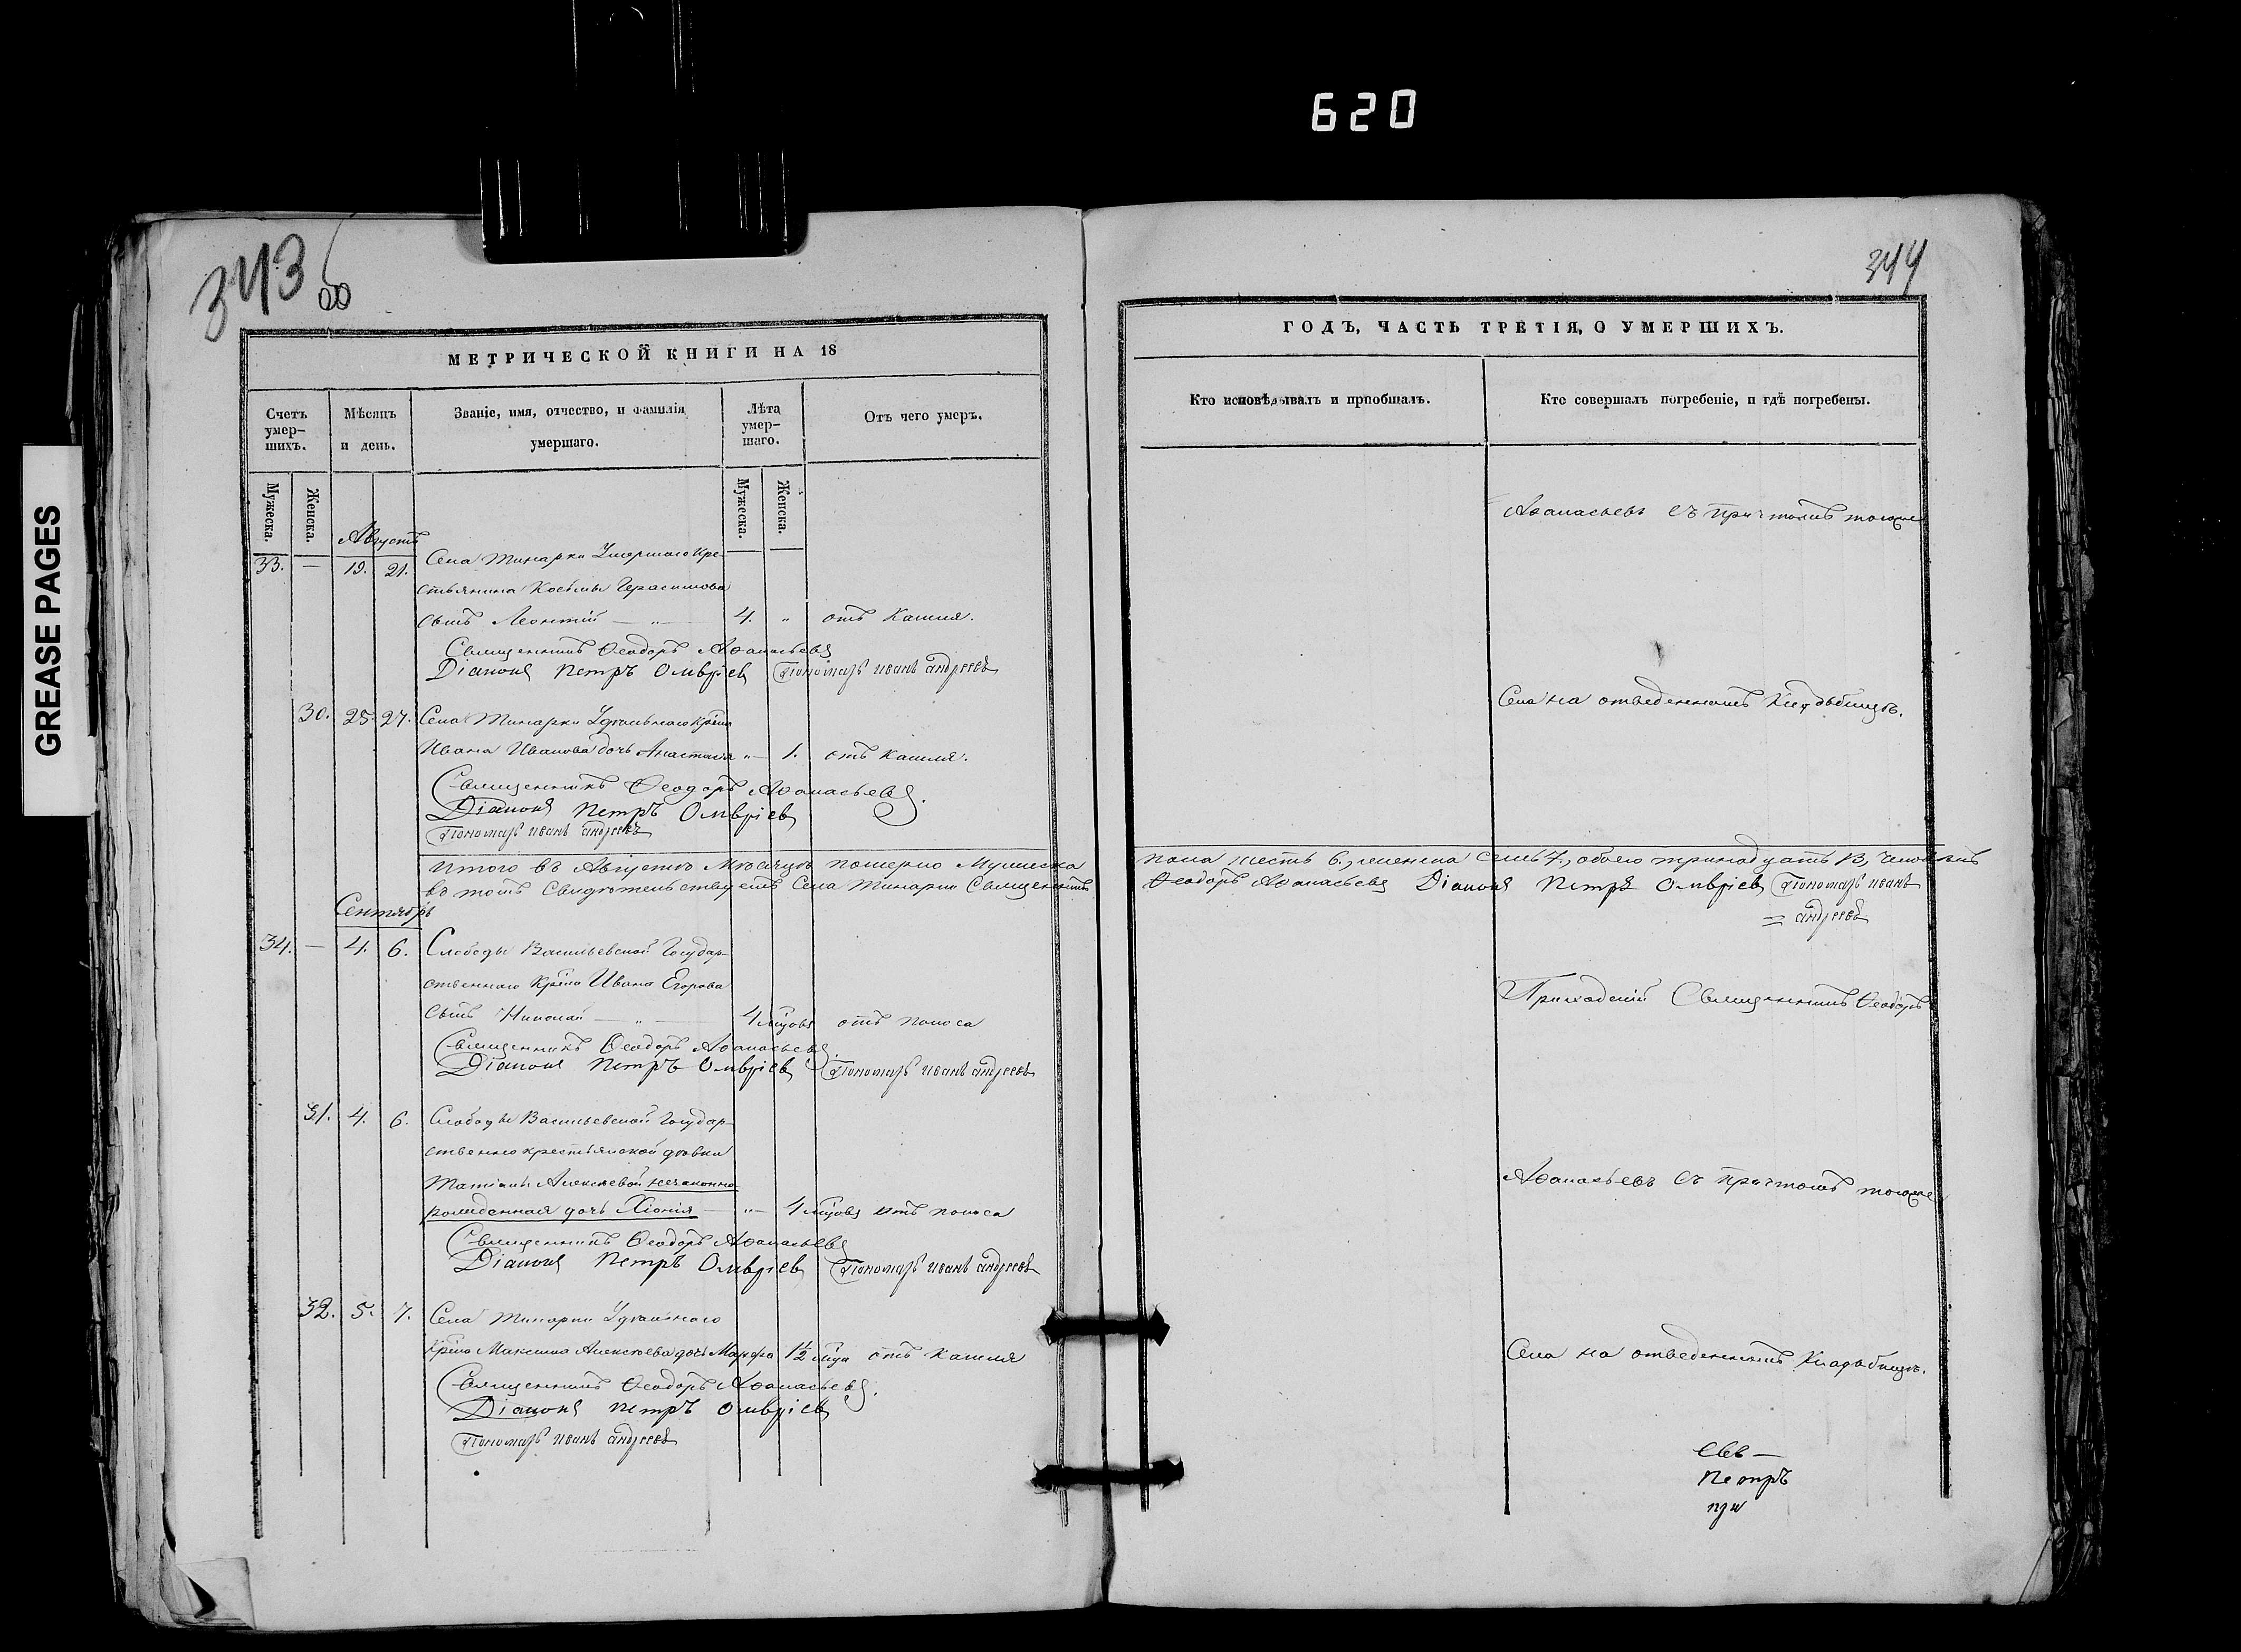 620
343 об
344
GREASE PAGES
МЕТРИЧЕСКОЙ КНИГИ НА 18
Счетъ умер-
шихъ.
Мѣсяцъ
и день.
Званіе, имя, отчество, и фамилія
умершаго.
Лѣта
умер-
шаго.
Отъ чего умеръ.
Мужеска.
Женска.
Мужеска.
Женска.
Августъ
33. — 19. 21. Села Тинарки Умершаго Кре-
стьянина Косьмы Герасимова
сынъ Леонтій — „ — 4. „ отъ Кашля.
Священникъ Ѳеодоръ Аѳанасьевъ
Діаконъ Петръ Омвріев Пономарь Иванъ Андреевъ
30. 25. 27. Села Тинарки Удѣльнаго крѣна
Ивана Иванова дочь Анастасія „ — 1. отъ кашля.
Священникъ Ѳеодоръ Аѳанасьевъ.
Діаконъ Петръ Омвріев
Пономарь Иванъ Андреевъ
Итого въ Августѣ Мѣсяцѣ померло Мужеска
въ томъ Свидѣтельствуетъ Села Тинарки Священникъ
Сентябрь
34. — 4. 6. Слободы Васильевской Государ-
ственнаго Крѣна Ивана Егорова
сынъ Николай — „ — 4 мцовъ отъ поноса
Священникъ Ѳеодоръ Аѳанасьевъ.
Діаконъ Петръ Омвріев Пономарь Иванъ Андреевъ
31. 4. 6. Слободы Васильевской Государ-
ственно крестьянской дѣвки
Татіаны Алексѣевой незаконно
рожденная дочь Хіонія — „ — 4 мцовъ отъ поноса
Священникъ Ѳеодоръ Аѳанасьевъ
Діаконъ Петръ Омвріев Пономарь Иванъ Андреевъ
32. 5. 7. Села Тинарки Удѣльнаго
Крѣна Максима Алексѣева дочь Марѳа 1½ мца отъ кашля
Священникъ Ѳеодоръ Аѳанасьевъ.
Діаконъ Петръ Омвріев
Пономарь Иванъ Андреевъ
ГОДЪ, ЧАСТЬ ТРЕТІЯ, О УМЕРШИХЪ.
Кто исповѣдывалъ и пріобщалъ.
Кто совершалъ погребеніе, и гдѣ погребены.
Аѳанасьевъ съ причтомъ тогоже
Села на отведенномъ Кладбищѣ.
пола шесть 6., женска семь 7., обоего тринадцать 13, человѣкъ
Ѳеодоръ Аѳанасьевъ Діаконъ Петръ Омвріев Пономарь Иванъ
= Андреевъ
Приходскій Священникъ Ѳеодоръ
Аѳанасьевъ съ причтомъ тогоже
Села на отведенномъ Кладбищѣ.
Петръ